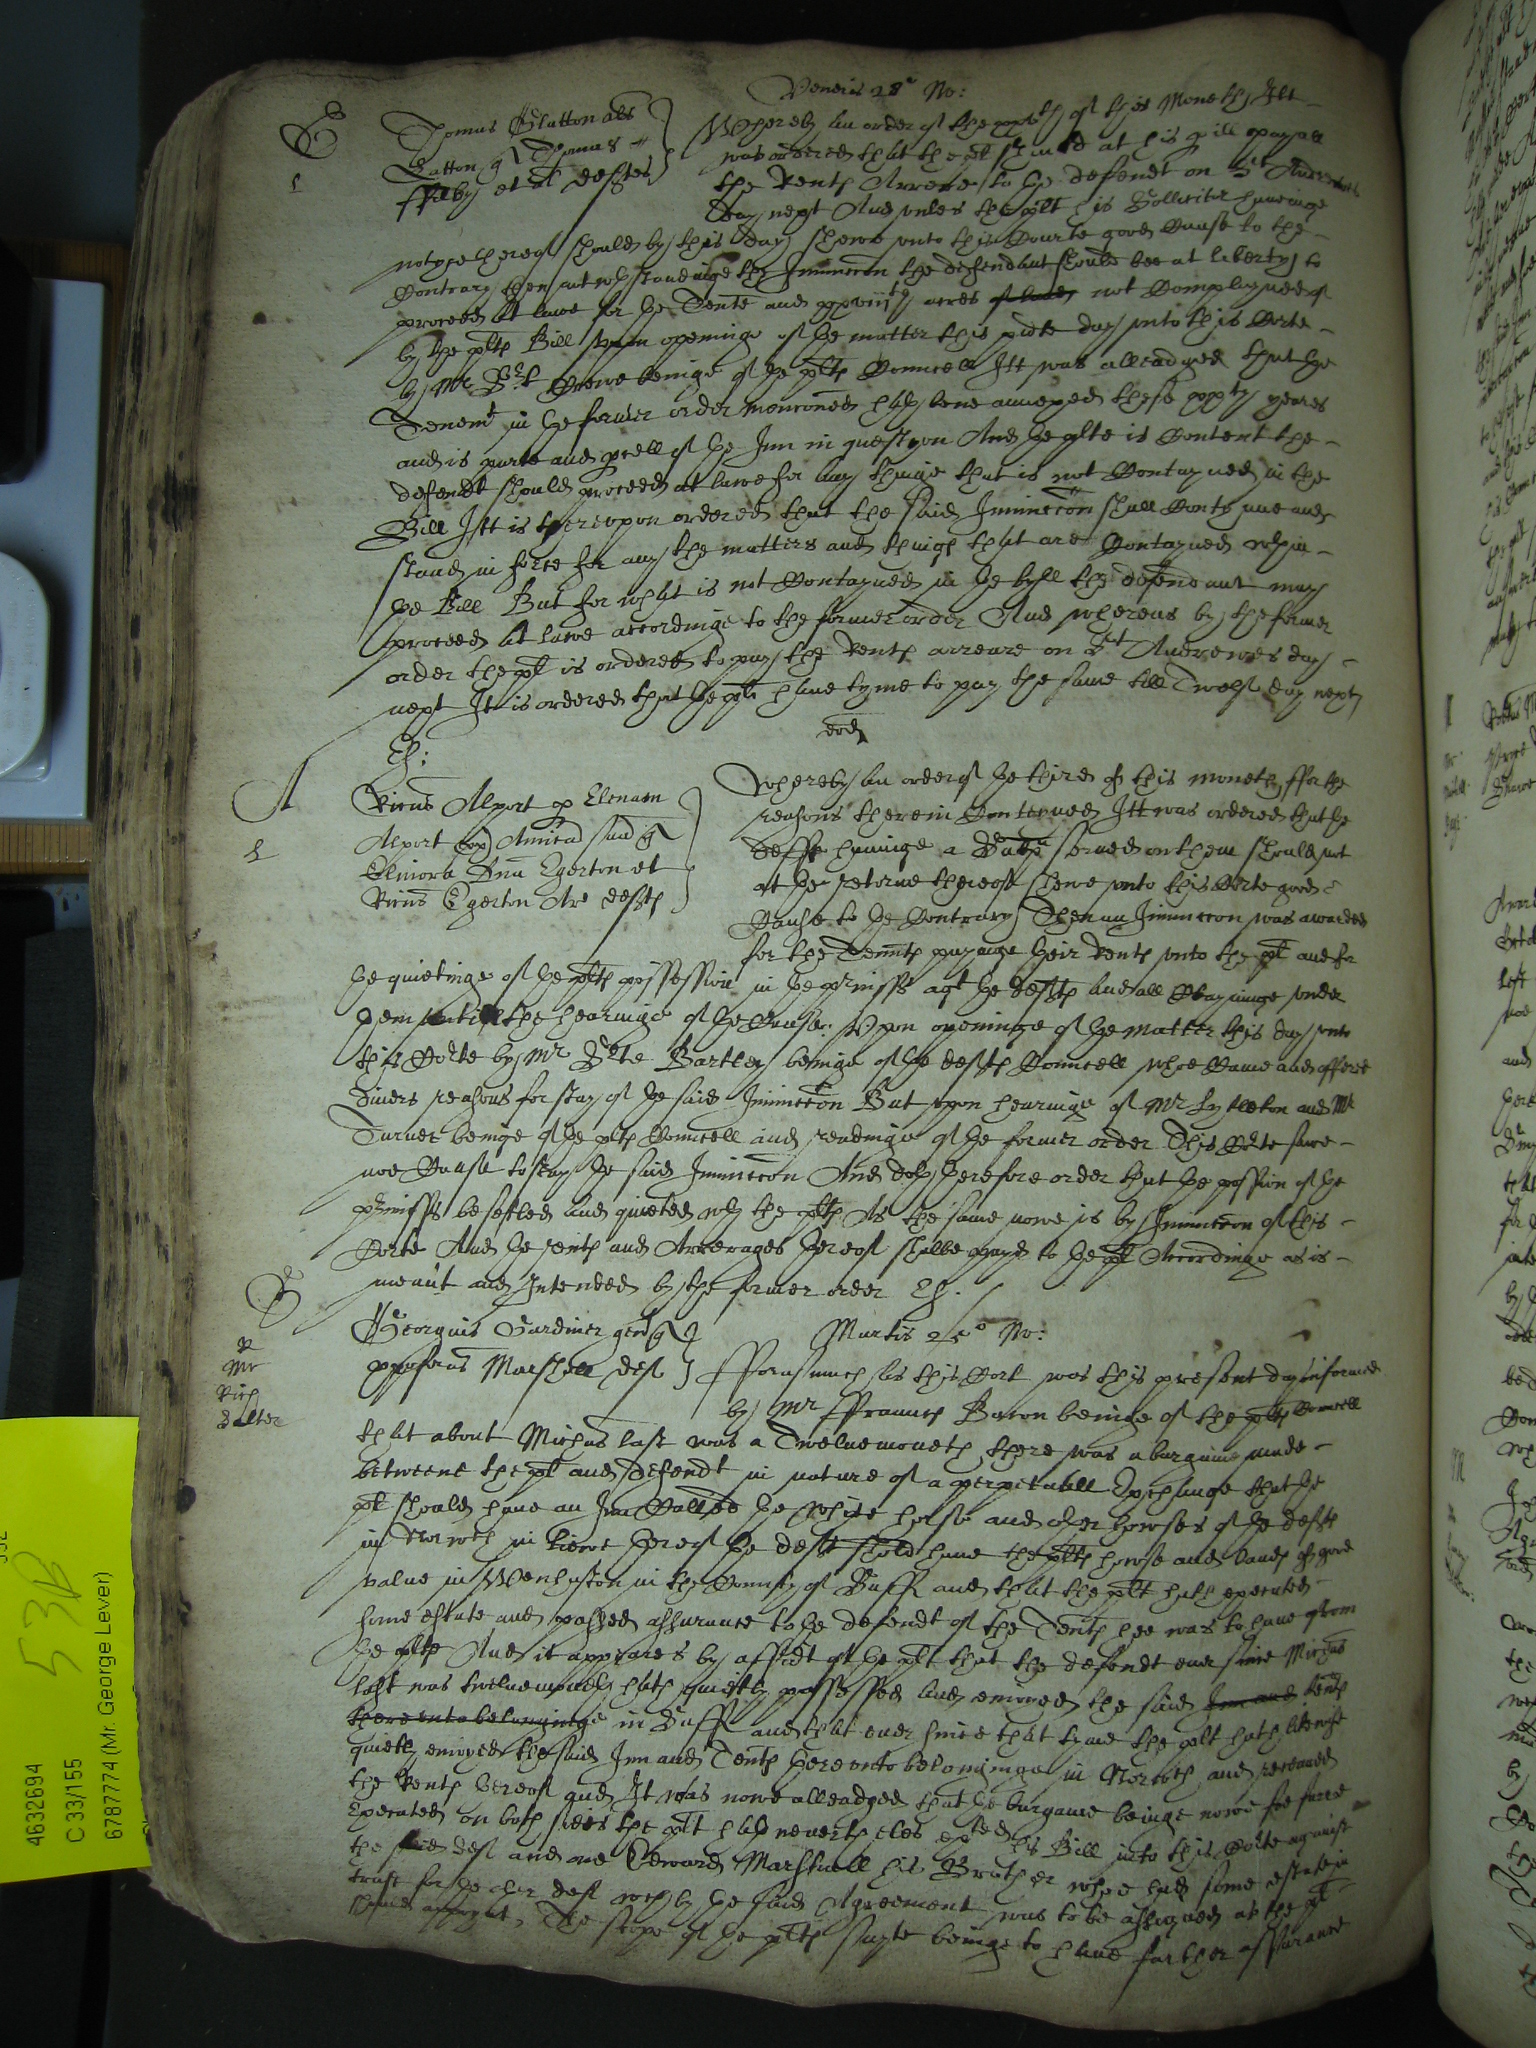 Veneris 28° No:
Thomas Glutton als
Gatton q Thomas
ffilby et al deftes
Whereby an order of the of this Moneth Itt
was ordered that the plt should at his pill pay all
the Rents Arrere to the defendt on St Andrewes
day next And unles the plt his Sollicitor haveinge
notyce thereof should by this day shewe unto this Courte good Cause to the
Contrary then notwthstandinge the Iniunccon the defendant should bee at liberty to
proceed at lawe for the Tente and acres of land not Complayned of
by the plts Bill Upon openinge of the matter this pnte day unto this Corte
by Mr Drewe beinge of the plts Councell Itt was alleadged that the
Tenemt in the former order menconed hath bene annexed these yeares
and is parte and pcell of the Inn in question And the plte is Content the
defendt should proceed at lawe for any thinge that is not Contayned in the
Bill Itt is thereupon ordered that the said Iniunccon shall Contynue and
stand in force for any the matters and things that are Contayned wthin
the Bill But for what is not Contayned in the byll the defendant may
proceed at lawe accordinge to the former order And whereas by the former
order the plt is ordered to pay the Rents arreare on St Andrewes day
next It is ordered that the plt have tyme to pay the same till Twelf day next
Eh:
eod
A
L
Ricus Alport q Elenam
Alport Amica sua q
Elinora Egerton et
Ricus Egerton Ar defts
Whereby an order of the third of this moneth ffor the
reasons therein Conteyned Itt was ordered that the
deftes havinge a served on them should not
at the retorne thereof shewe unto this Corte good
Cause to the Contrary Then an Iniunccon was awarded
for the Tennts payinge their Rents unto the plt and for
the quietinge of the plts possession in the prmisses agt the defts and all Clayminge under
them untill the hearinge of the Cause. Upon openinge of the matter this day unto
this Corte by Mr Bartley beinge of the defts Councell who Came and offered
divers reasons for stay of the said Iniunccon But upon hearinge of Mr Lytleton and Mr
Turner beinge of the plts Councell and readinge of the former order This Corte sawe
noe Cause to stay the said Iniunccon And doth therefore order that the possion of the
prmisses be setled and quieted wth the plts As the same nowe is by Iniunccon of this
Corte And the rents and Arrerages thereof shalbe payd to the plt Accordinge as is
meant and Intended by the former order Eh.
Mr
Rich
Georgius Gardiner gen q
Marshall def
Martis 25° No:
fforasmuch as this Cort was this present day informed
by Mr ffrauncis Bacon beinge of the plts Councell
that about Michas last was a Twelvemoneth there was a bargaine made
betweene the plt and defendt in nature of a perpetuall Exchange that the
plt should have an Inn Called the White horse and other howses of the defts
in Norwch in liewe thereof the deft should have the plts howse and lands of good
value in Wenhaston in the County of Suff and that the plt hath executed
some estate and passed assurance to the defendt of the Tents hee was to have from
the plte And it appeares by affidt of the plt that the defendt ever since Michas
last was twelvemoneth hath quietly possessed and enioyed the said Inn and tents
thereunto belonginge in Suff and that ever since that tyme the plt hath likewise
quietly enioyed the said Inn and Tents thereunto belonginge in Norwch and receaved
the Rents thereof and It was nowe alleadged that the bargaine beinge nowe soe farre
Executed on both sides the plt hath neverthelss his Bill into this Corte against
the said deft and one Edward Marshall his Brother whoe had some estate in
trust for the other deft wch by the said Agreement was to be assigned as the plt
The scope of the plts suyte beinge to have further assurance
4632694
C 33/155
6787774 (Mr. George Lever)